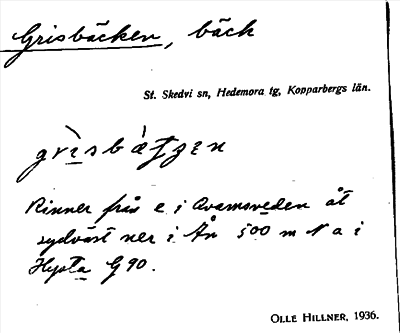 Grisbäcken, bäck
St. Skedvi sn, Hedemora tg, Kopparbergs län.
Rinner från e i Kvarnsveden åt
sydväst ner i Ån 500 m N a i
Hysta G 90.
OLLE HILLNER, 1936.